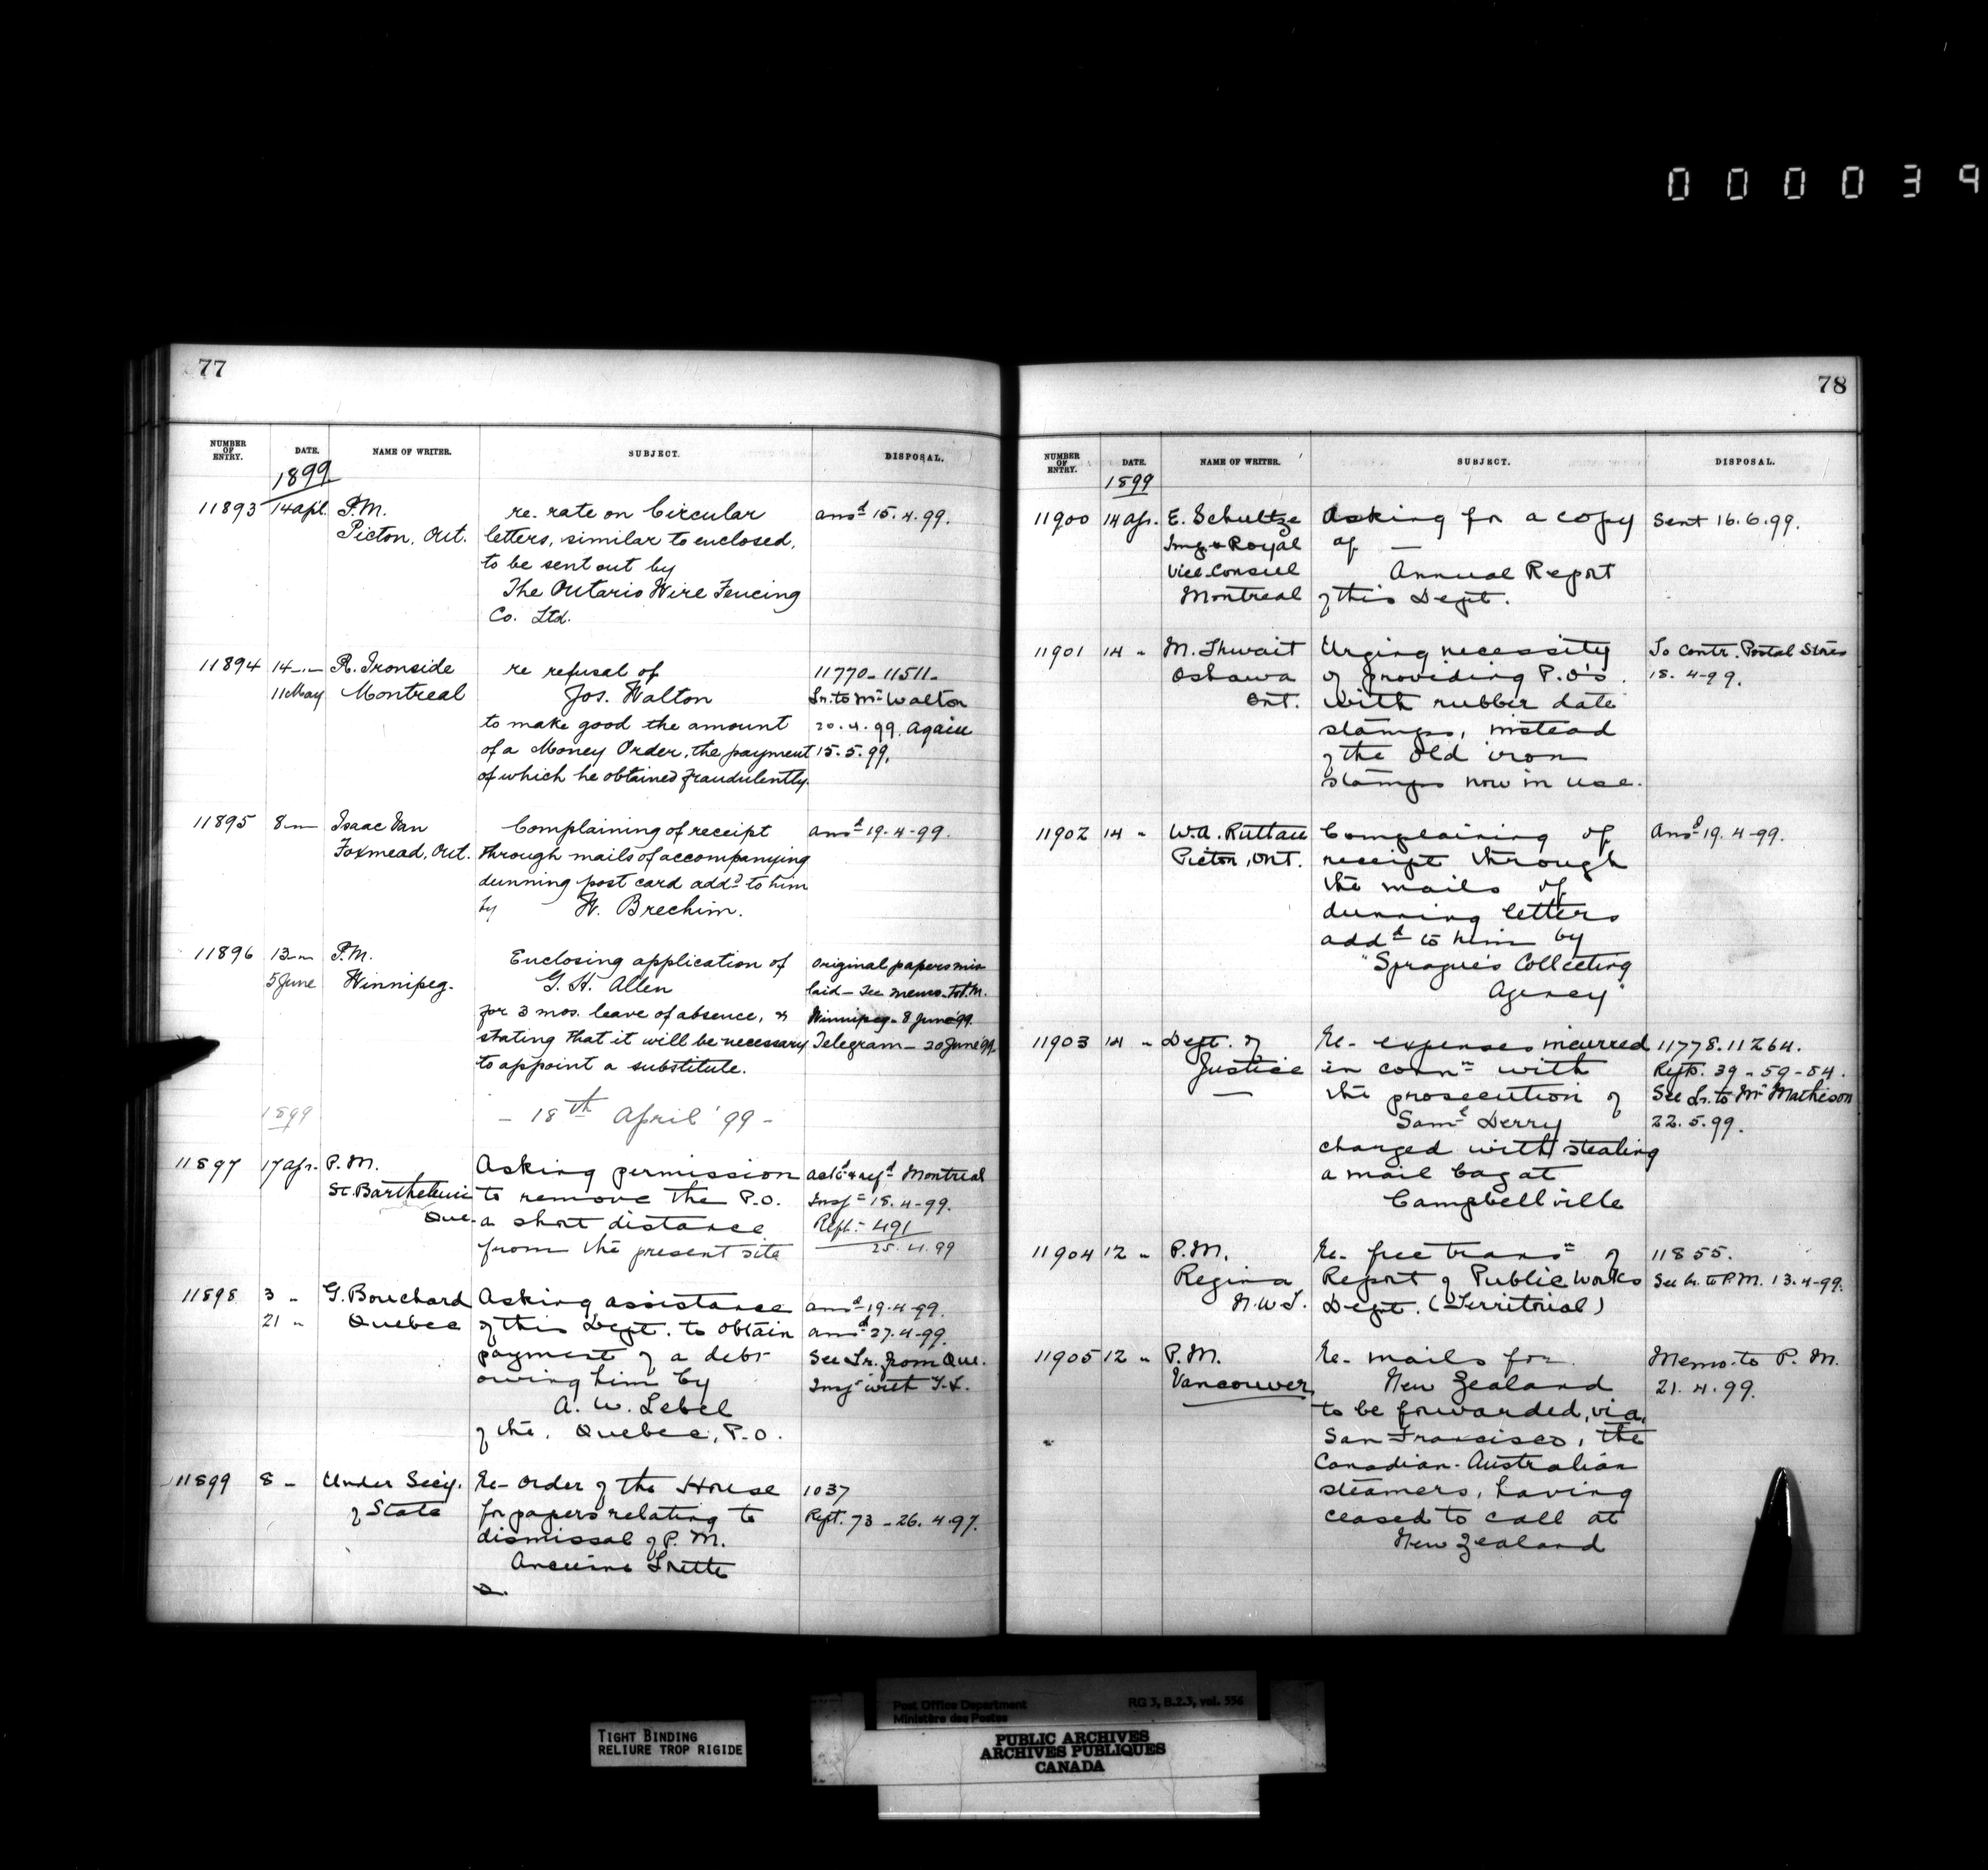 0 0 0 0 3 9
77
NUMBER OF ENTRY. DATE. NAME OF WRITER. SUBJECT. DISPOSAL.
1899
11893 14 Apl. P.M. re. rate on Circular ansd 15.4.99.
Picton, Ont. letters, similar to enclosed,
to be sent out by
The Ontario Wire Fencing
Co. Ltd.
11894 14 -"- R. Ironside re refusal of 11770-11511-
11 May Montreal Jos. Walton Lr. to Mr Walton
to make good the amount 20.4.99. Again
of a Money Order, the payment 15.5.99.
of which he obtained fraudulently.
11895 8 -"- Isaac Van Complaining of receipt ansd 19.4-99.
Foxmead, Ont. through mails of accompanying
dunning post card addd to him
by W. Brechim.
11896 13 -"- P.M. Enclosing application of Original papers mis
5 June Winnipeg. G. H. Allen laid - See memo. to P.M.
for 3 mos. leave of absence, & Winnipeg - 8 June 99.
stating that it will be necessary Telegram - 20 June 99.
to appoint a substitute.
1899 - 18th April '99 -
11897 17 Apr. P.M. Asking permission ackd & refd Montreal
St. Barthelemi to remove the P.O. Inspr 18.4-99.
Que. a short distance Rept. 491
from the present site 25.4.99
11898 3 " G. Bouchard Asking assistance ansd 19.4-99.
21 " Quebec of this Dept. to obtain ansd 27.4-99.
payment of a debt See Lr. from Que.
owing him by Inspr with
A. W. Lebel
of the, Quebec, P.O.
11899 8 - Under Secy. Re- Order of the House 1037
of State for papers relating to Rept. 73 - 26.4.97.
dismissal of P.M.
78
NUMBER OF ENTRY. DATE. NAME OF WRITER. SUBJECT. DISPOSAL.
1899
11900 14 Apr. E. Schultze Asking for a copy Sent 16.6.99.
Impl & Royal of —
Vice Consul Annual Report
Montreal of this Dept.
11901 14 " M. Thwait Urging necessity To Contr. Postal Stores
Oshawa of providing P.O's. 18.4-99.
Ont. with rubber date
stamps, instead
of the old iron
stamps now in use.
11902 14 " W.A. Ruttan Complaining of Ansd 19.4-99.
Picton, Ont. receipt through
the mails of
dunning letters
addd to him by
"Sprague's Collecting
Agency"
11903 14 " Dept. of Re- expenses incurred 11778.11264.
Justice in connn with Repts. 39-59-84.
— the prosecution of See Lr. to Mr Mathison
Saml Derry 22.5.99.
charged with stealing
a mail bag at
Campbellville
11904 12 " P.M. Re- free transn of 11855.
Regina Report of Public Works See Lr. to P.M. 13.4-99.
N.W.T. Dept. (Territorial)
11905 12 " P.M. Re- mails for Memo. to P.M.
Vancouver New Zealand 21.4.99.
to be forwarded, via,
San Francisco, the
Canadian-Australian
steamers, having
ceased to call at
New Zealand
TIGHT BINDING
RELIURE TROP RIGIDE
Post Office Department RG 3, B.2.3, vol. 556
Ministère des Postes
PUBLIC ARCHIVES
ARCHIVES PUBLIQUES
CANADA